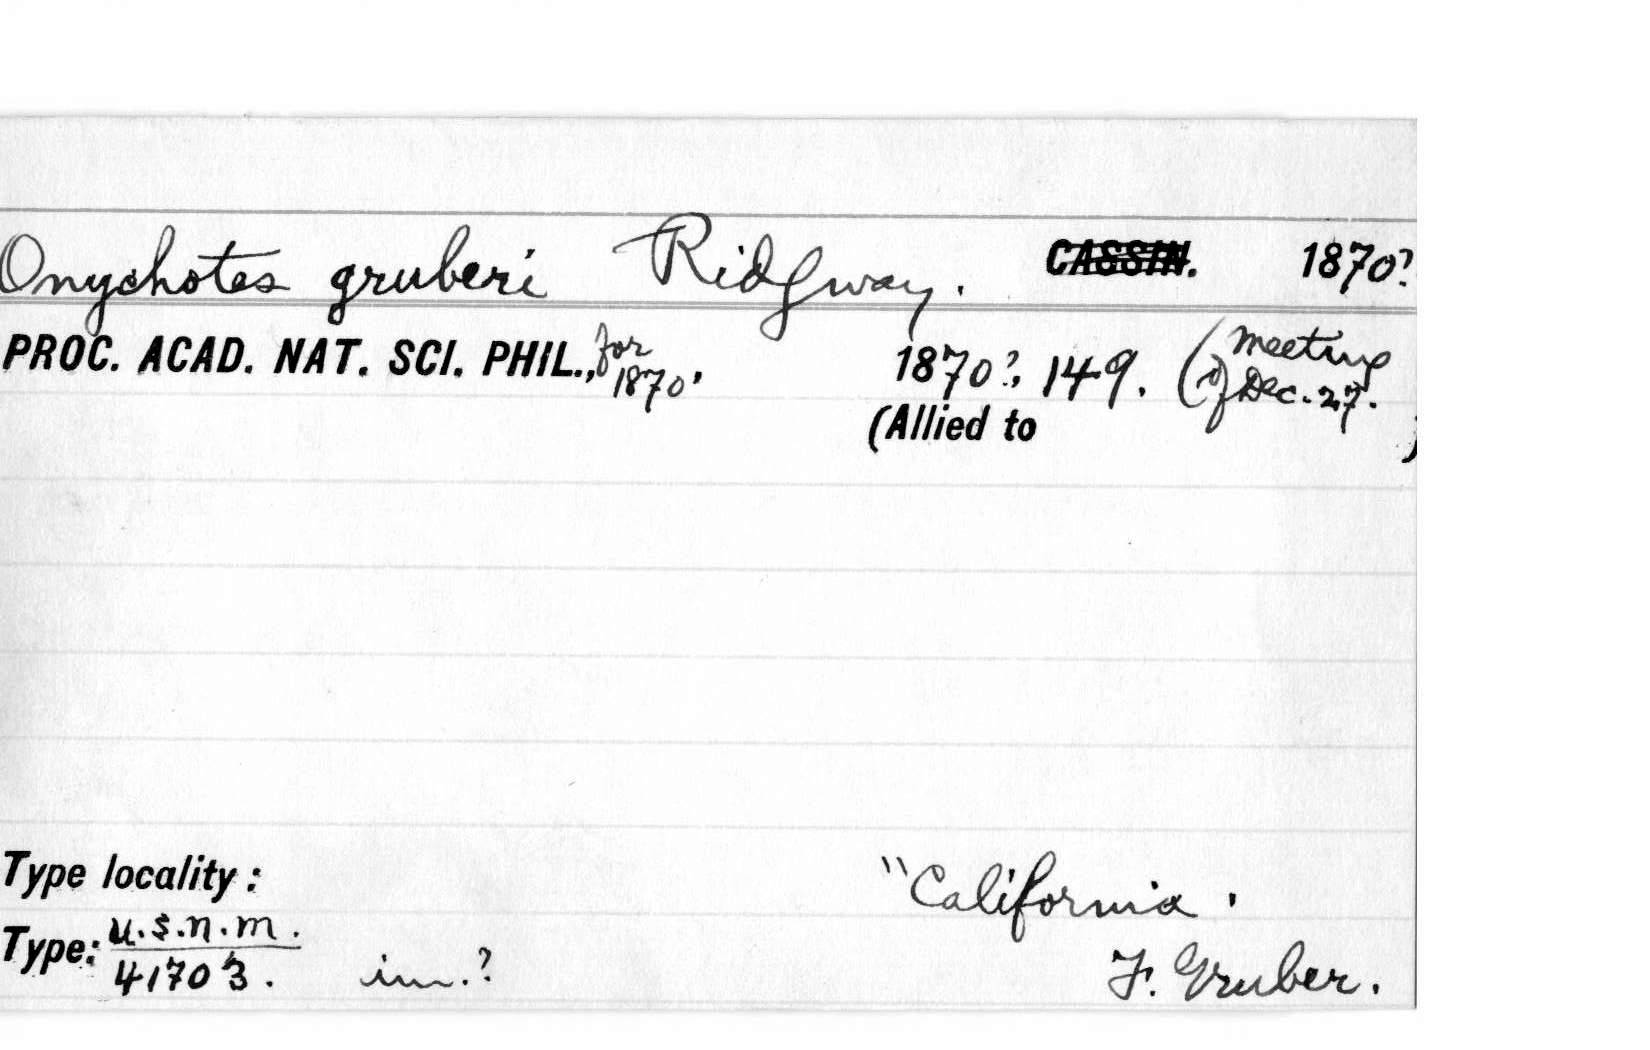 Onychotes gruberi Ridgway. CASSIN. 1870?
PROC. ACAD. NAT. SCI. PHIL., for 1870, 1870?, 149. (Meeting of Dec. 27.
(Allied to )
Type locality: "California.
Type: U.S.N.M. 41703. im.? F. Gruber.